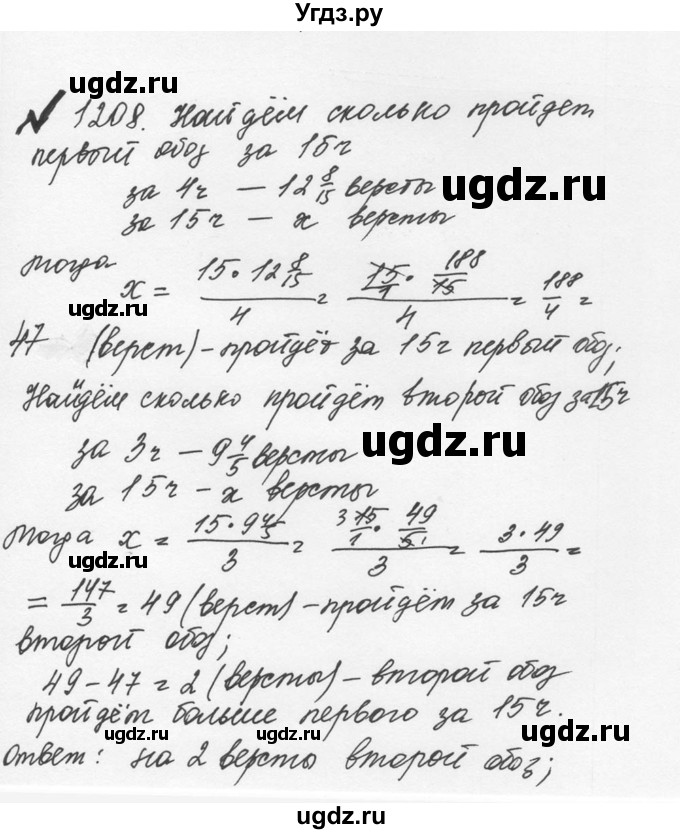 Угдз.ру
ugdz.ru
№ 1208. Найдём сколько пройдет
первый обоз за 15ч
за 4ч — 12 8/15 версты
ugdz.ru
за 15ч — x версты
ugdz.ru
тогда x = 15·12 8/15 / 4 = 15/1 · 188/15 / 4 = 188/4 =
47 (верст) - пройдёт за 15ч первый обоз;
ugdz.ru
Найдём сколько пройдёт второй обоз за 15ч
за 3ч — 9 4/5 версты
ugdz.ru
за 15ч - x версты
Тогда x = 15·9 4/5 / 3 = 3 15/1 · 49/5 1 / 3 = 3·49 / 3 =
ugdz.ru
= 147/3 = 49 (верст) - пройдём за 15ч
второй обоз;
49 - 47 = 2 (версты) - второй обоз
пройдём больше первого за 15ч.
ugdz.ru ugdz.ru
Ответ: на 2 версты второй обоз;
ugdz.ru